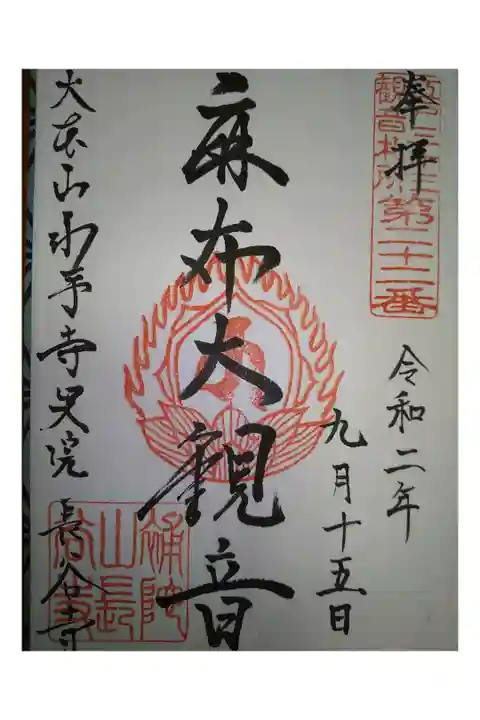 奉拝
観音札所第二十二番
令和二年
九月十五日
麻布大観音
補陀山長谷寺
大本山永平寺別院長谷寺